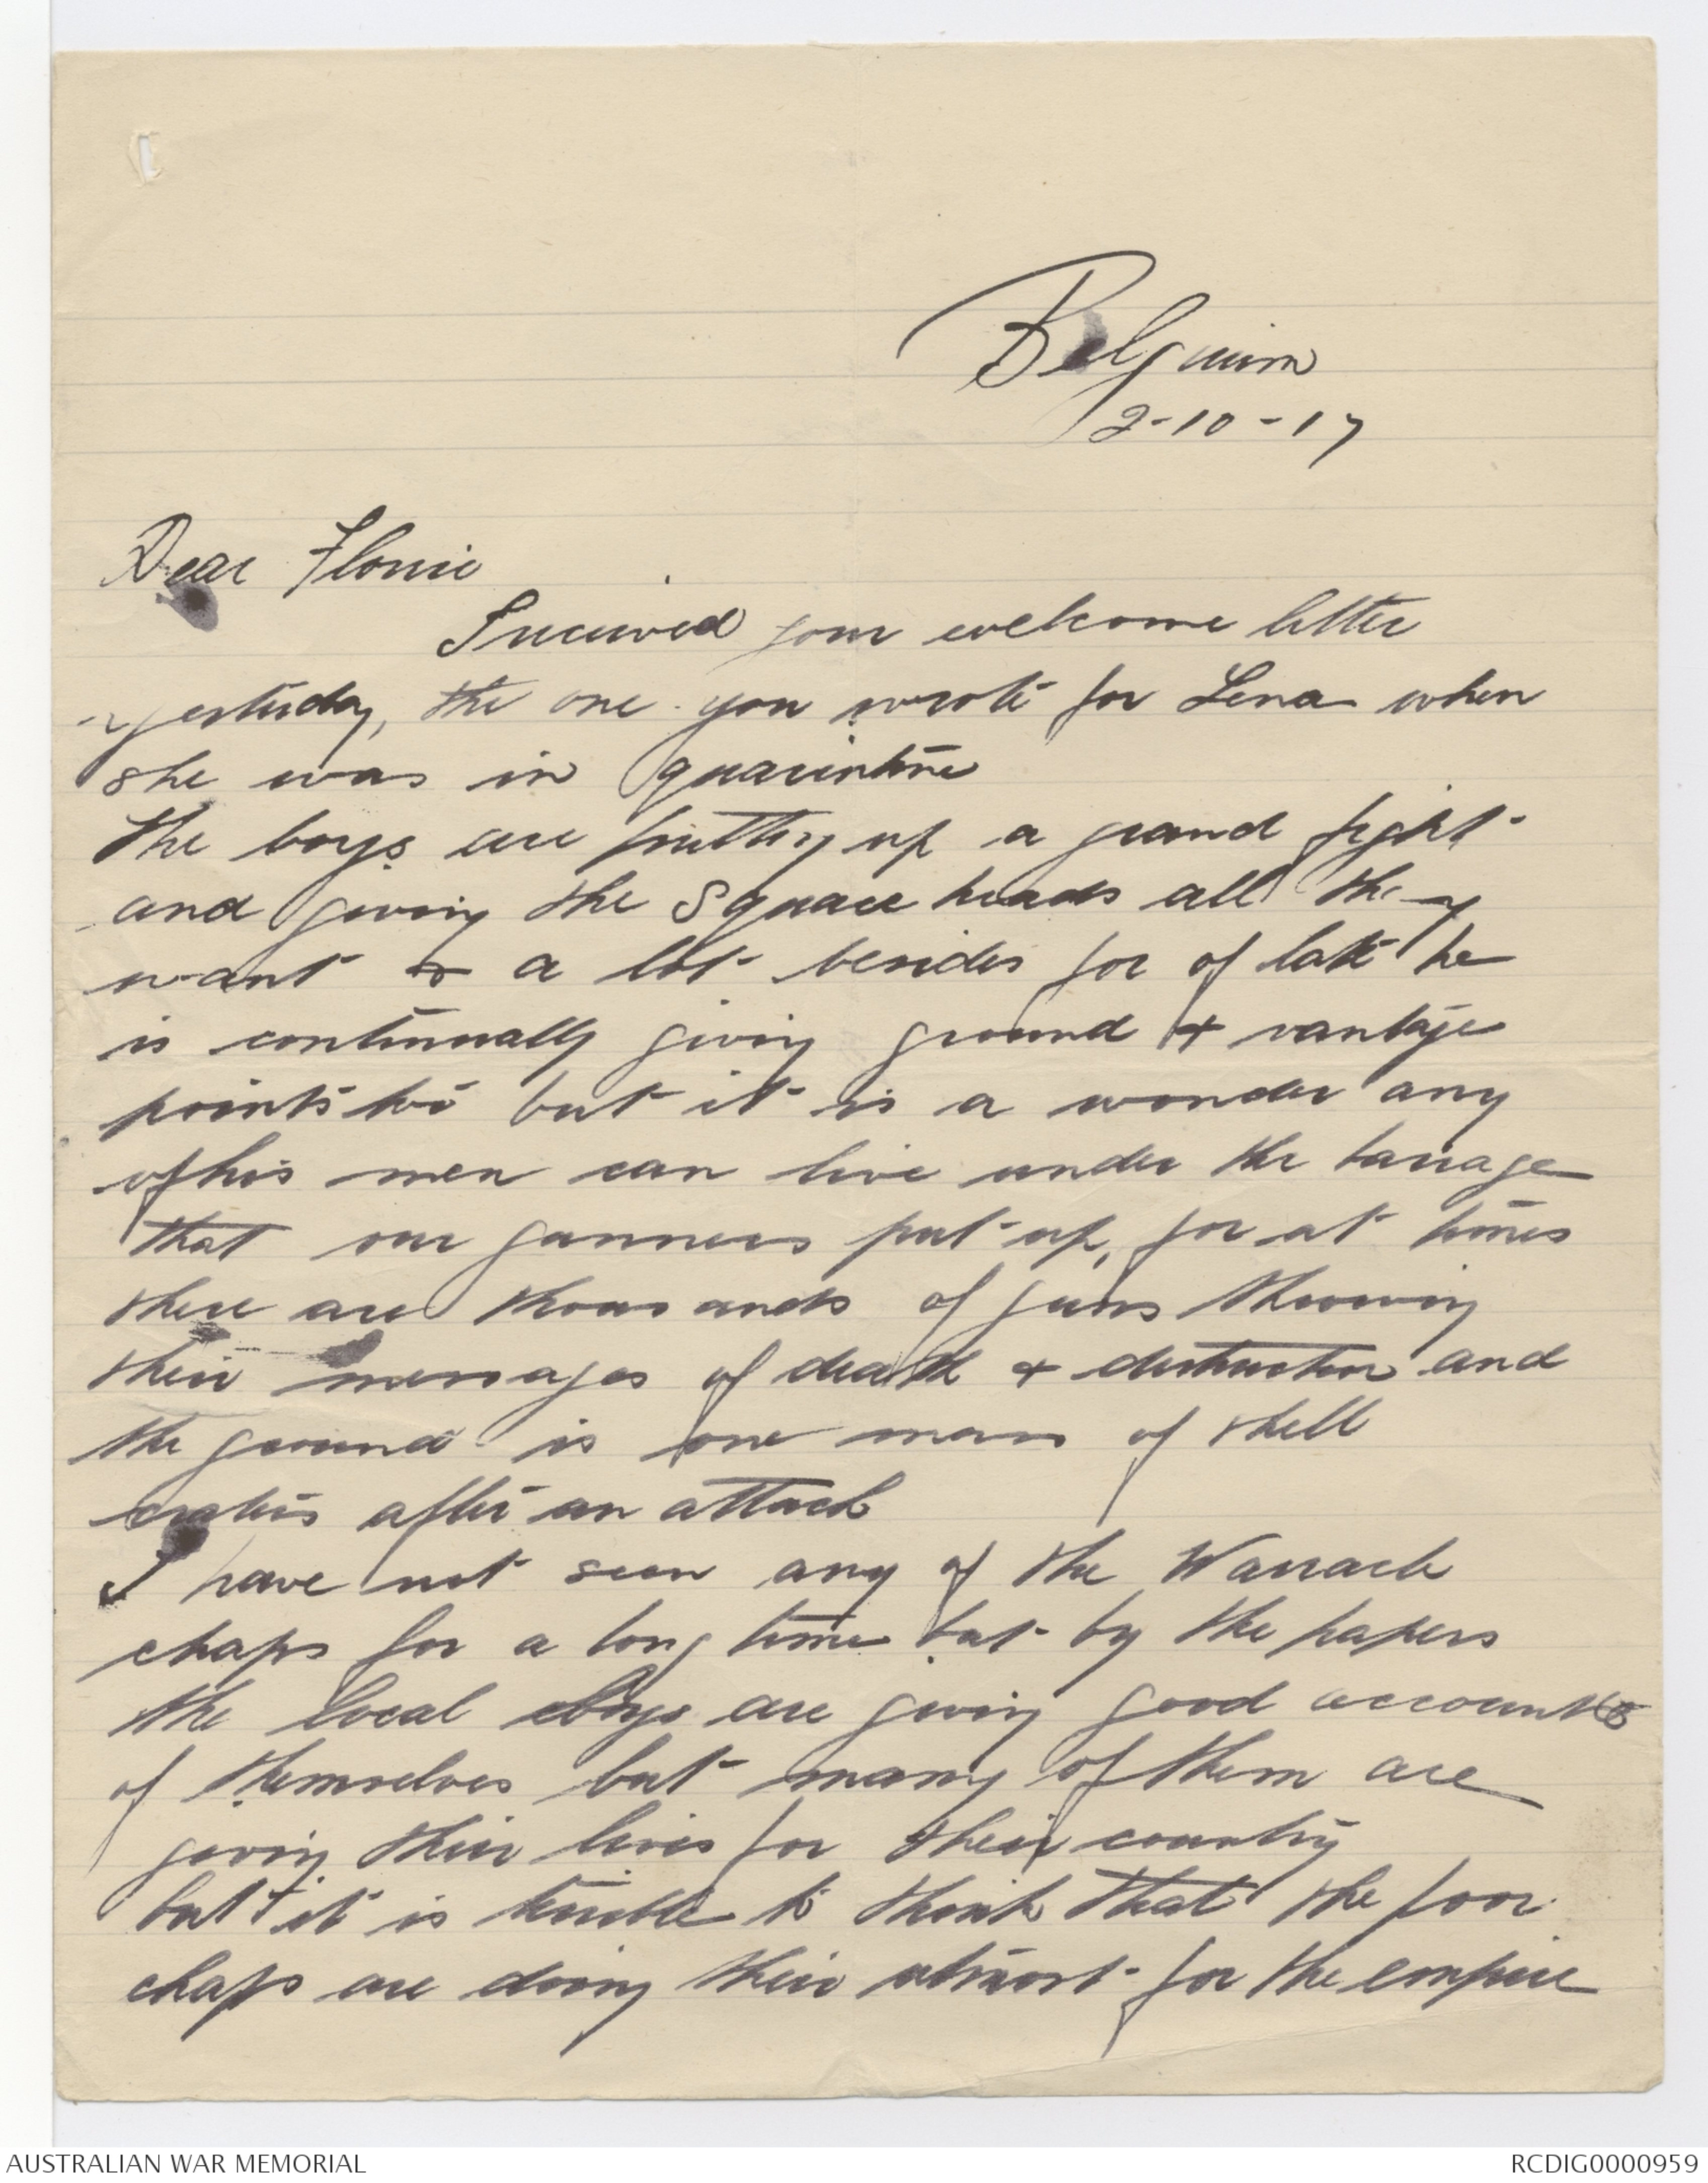 Belguim
2-10-17
Dear Florrie
I received your welcome letter
yesterday, the one you wrote for Lena when
she was in quarintine
the boys are putting up a grand fight
and giving the Square heads all they
want & a lot besides for of late he
is continually giving ground & vantage
points too but it is a wonder any
of his men can live under the barrage
that our gunners put up, for at times
there are thousands of guns throwing
their messages of death & destruction and
the ground is one mass of shell
craters after an attack
I have not seen any of the Warrack
chaps for a long time but by the papers
the local boys are giving good accounts
of themselves but many of them are
giving their lives for their country
but it is terrible to think that the poor
chaps are doing their utmost for the empire
AUSTRALIAN WAR MEMORIAL
RCDIG0000959